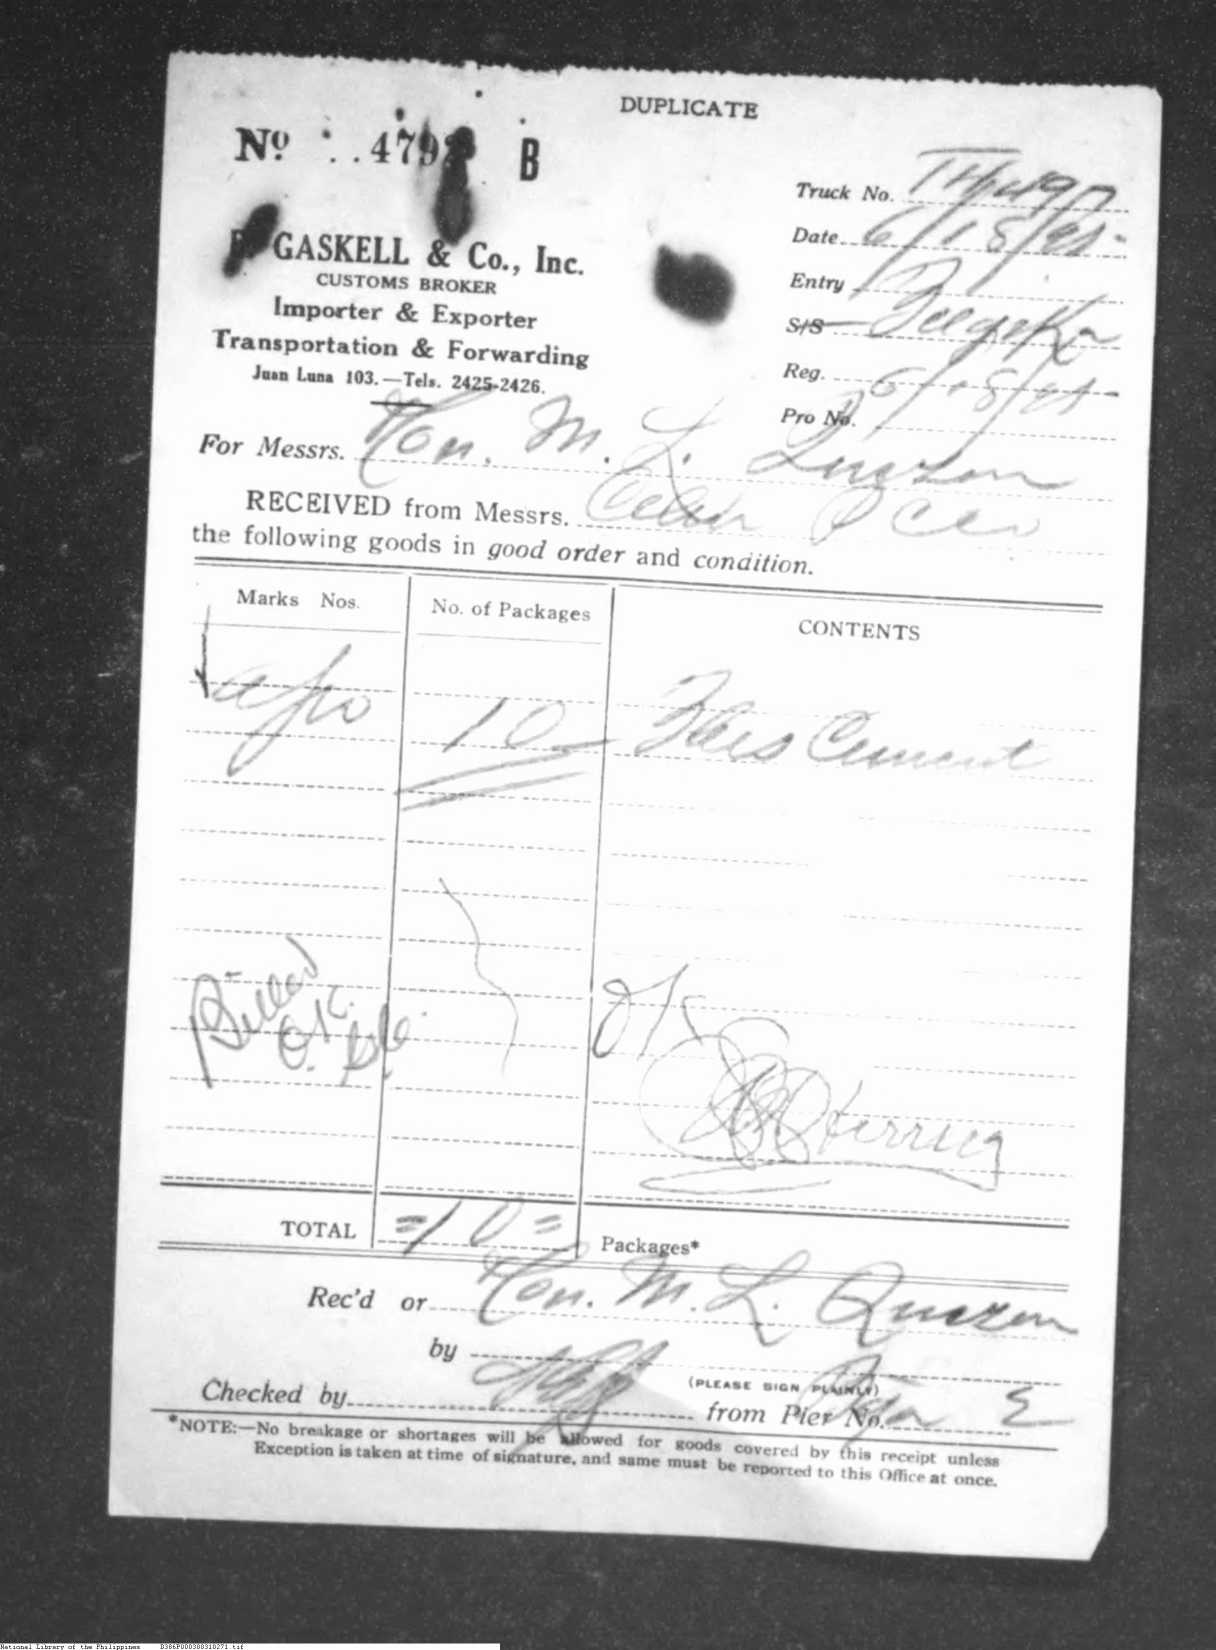 DUPLICATE
Nº 479 B
Truck No.
Date 6/18/41
GASKELL & Co., Inc.
CUSTOMS BROKER
Entry
Importer & Exporter
S/S
Transportation & Forwarding
Reg. 6/18/41
Juan Luna 103.—Tels. 2425-2426.
Pro No.
For Messrs. Hon. M. L. Quezon
RECEIVED from Messrs. Cebu
the following goods in good order and condition.
Marks Nos. No. of Packages CONTENTS
Apo 10 Cement
Billed
O.K.
OK
TOTAL =10= Packages*
Rec'd or Hon. M. L. Quezon
by
(PLEASE SIGN PLAINLY)
Checked by from Pier No.
*NOTE:—No breakage or shortages will be allowed for goods covered by this receipt unless
Exception is taken at time of signature, and same must be reported to this Office at once.
National Library of the Philippines D386P000300310271.tif